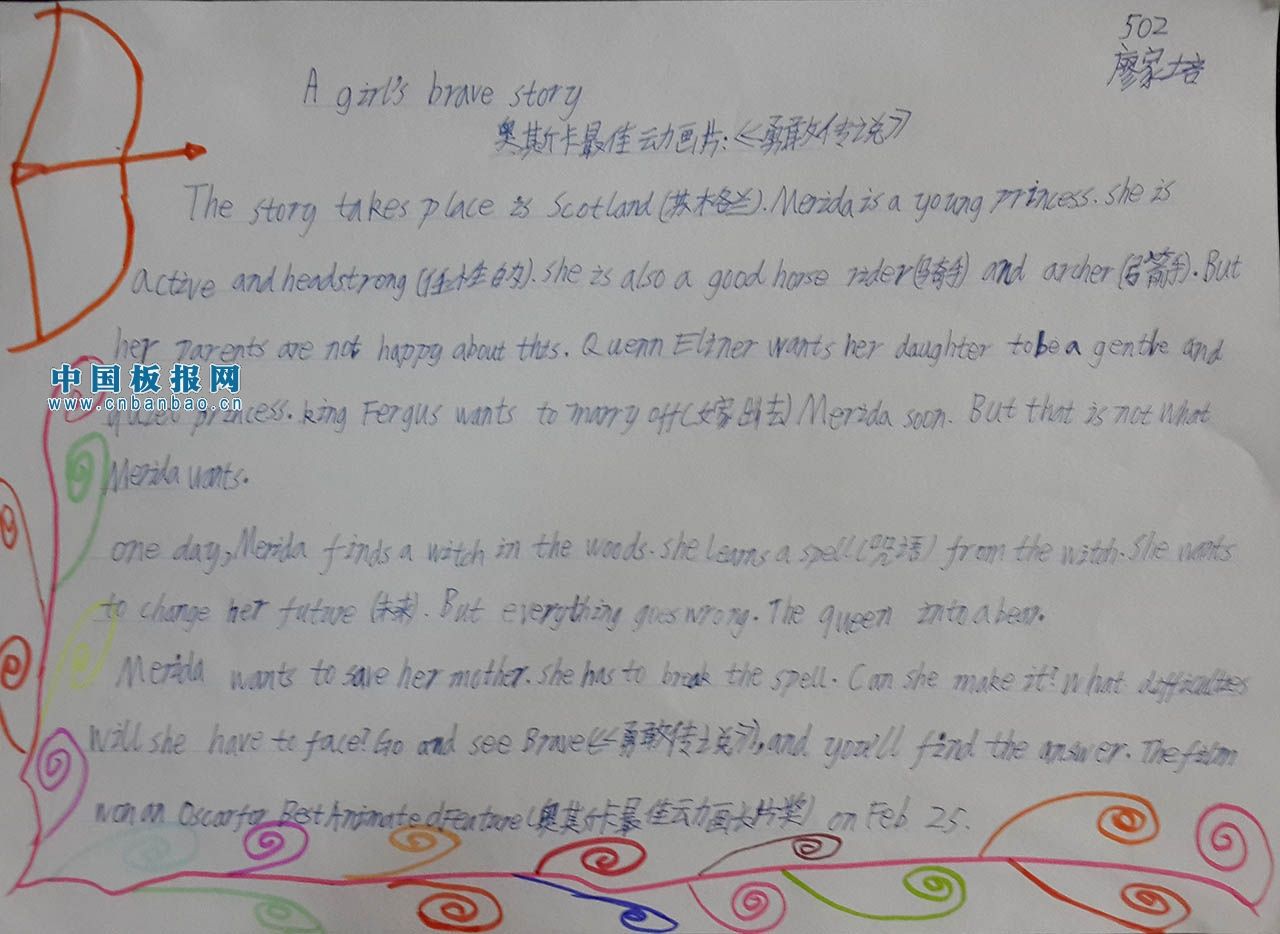 502
廖家培
A girl's brave story
奥斯卡最佳动画片:《勇敢传说》
The story takes place is Scotland(苏格兰). Merida is a young princess. she is
active and headstrong(任性的). she is also a good horse rider(骑手) and archer(弓箭手). But
her parents are not happy about this. Quenn Eliner wants her daughter to be a gentle and
中国板报网
www.cnbanbao.cn
princess. king Fergus wants to marry off(嫁出去) Merida soon. But that is not what
Merida wants.
one day, Merida finds a witch in the woods. she learns a spell(咒语) from the witch. She wants
to change her future (未来). But everything goes wrong. The queen into a bear.
Merida wants to save her mother. she has to break the spell. Can she make it? What difficulties
will she have to face? Go and see Brave(《勇敢传说》), and you'll find the answer. The film
won an Oscar for Best Animated Feature(奥斯卡最佳动画长片奖) on Feb 25.